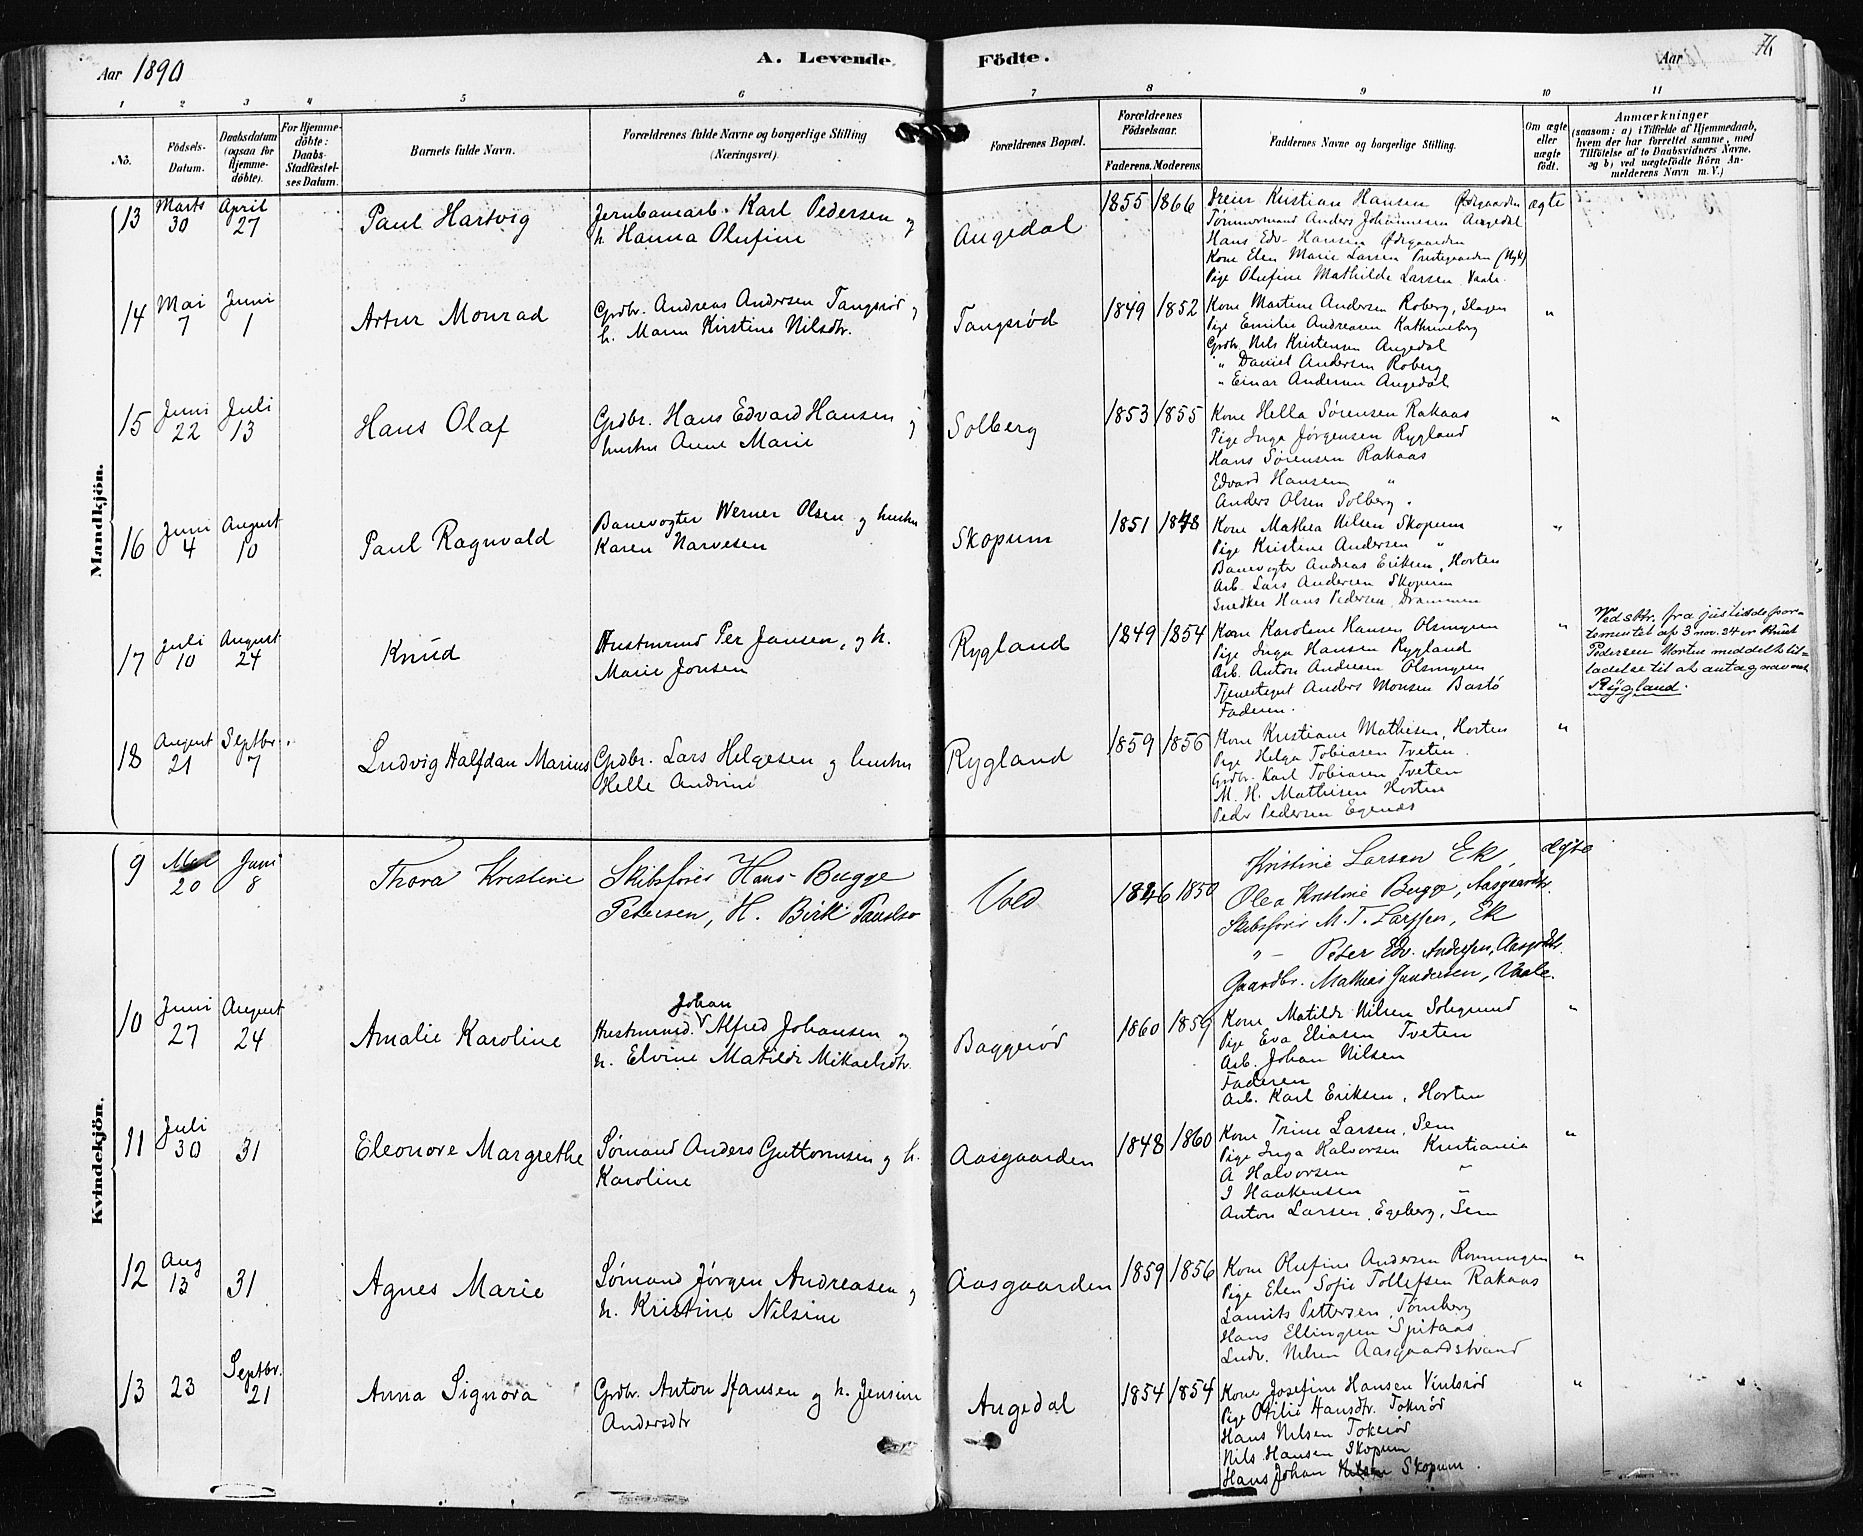 Aar 1890
A. Levende Födte.
Aar
76
1 2 3 4 5 6 7 8 9 10 11
No.
Födsels-Datum.
Daabsdatum (ogsaa for Hjemme-döbte).
For Hjemme-döbte: Daabs-Stadfæstel-ses Datum.
Barnets fulde Navn.
Forældrenes fulde Navne og borgerlige Stilling (Næringsvei).
Forældrenes Bopæl.
Forældrenes Födselsaar.
Faderens. Moderens.
Faddernes Navne og borgerlige Stilling.
Om ægte eller uægte födt.
Anmærkninger
(saasom: a) i Tilfælde af Hjemmedaab, hvem der har forrettet samme, med Tilföielse af to Daabsvidners Navne, og b) ved uægtefödte Börn Anmelderens Navn m. V.)
Mandkjön.
13 Marts 30 April 27 Paul Hartvig
Jernbanearb. Karl Pedersen og
h. Hanna Olufine
Augedal 1855 1866
Dreier Kristian Hansen Ødegaarden ægte
Tømmermand Anders Johannesen Augedal
Hans Edv. Hansen Ødegaarden
Kone Elen Marie Larsen Prestegaarden (Nyk)
Pige Olufine Mathilde Larsen Vaale.
14 Mai 7 Juni 1 Artur Monrad
Grdbr. Andreas Andersen Tangsrød og
h. Maren Kirstine Nilsdtr.
Tangsrød 1849 1852
Kone Martine Andersen Roberg, Slagen "
Pige Emilie Andreasen Kathrineberg
Grdbr. Nils Kristensen Augedal
" Daniel Andersen Roberg
" Einar Andersen Augedal
15 Juni 22 Juli 13 Hans Olaf
Grdbr. Hans Edvard Hansen og
hustru Anne Marie
Solberg 1853 1855
Kone Hella Sørensen Rakaas "
Pige Inga Jørgensen Rygland
Hans Sørensen Rakaas
Edvard Hansen "
Anders Olsen Solberg.
16 Juni 4 August 10 Paul Ragnvald
Banevogter Werner Olsen og hustru
Karen Narvesen
Skopum 1851 1848
Kone Mathea Nilsen Skopum "
Pige Kristine Andersen "
Banevogter Andreas Eriksen, Horten
Arb. Lars Andersen Skopum
Snedker Hans Pedersen, Drammen
17 Juli 10 August 24 Knud
Husmand Per Jansen, og h.
Marie Jonsen
Rygland 1849 1854
Kone Karoline Hansen Olsmyren "
Pige Inga Hansen Rygland
Arb. Anton Andersen Olsmyren
Tjenestegut Anders Monsen Bastö
Faderen.
Ved skr. fra justisdepar-
tementet af 3 nov. 24 er Knut
Pedersen Horten meddelt til-
ladelse til at antag navnet
Rygland.
18 August 21 Septbr. 7 Ludvig Halfdan Marius
Grdbr. Lars Helgesen og hustru
Helle Andrine
Rygland 1859 1856
Kone Kristiane Mathisen, Horten "
Pige Helga Tobiasen Tveten
Grdbr. Karl Tobiasen Tveten
M. H. Mathisen Horten
Peder Pedersen Egenæs
Kvindekjön.
9 Mai 20 Juni 8 Thora Kristine
Skibsfører Hans Bugge
Petersen, H. Birk
Vold 1846 1850
Kristine Larsen Ek, ægte
Olea Kristine Bugge, Aasgaardstr.
Skibsfører M. T. Larssen, Ek
" - Peter Edv. Anderssen, Aasgrdstr.
Gaardbr. Mathias Gundersen, Vaale.
10 Juni 27 August 24 Amalie Karoline
Johan
Husmand. Alfred Johansen og
h. Elvine Matilde Mikaelsdtr.
Baggerød 1860 1859
Kone Matilde Nilsen Solegrund "
Pige Eva Eliasen Tveten
Arb. Johan Nilsen
Faderen
Arb. Karl Eriksen, Horten
11 Juli 30 31 Eleonore Margrethe
Sømand Anders Guttormsen og h.
Karoline
Aasgaarden 1848 1860
Kone Trine Larsen, Sem "
Pige Inga Halvorsen Kristiania
A Halvorsen "
I Haakensen "
Anton Larsen, Egeberg, Sem
12 Aug 13 31 Agnes Marie
Sømand Jørgen Andreasen og
h. Kristine Nilsine
Aasgaarden 1859 1856
Kone Olufine Andersen Rønningen "
Pige Elen Sofie Tollefsen Rakaas
Laurits Pettersen, Tønsberg
Hans Ellingsen Spitaas
Ludv. Nilsen Aasgaardstrand
13 23 Septbr. 21 Anna Signora
Grdbr. Anton Hansen og h. Jensine
Andersdtr
Augedal 1854 1854
Kone Josefine Hansen "
Pige Otilie Hansdtr. Tokerød
Hans Nilsen Tokerød
Nils Hansen Skopum
Hans Johan Nilsen Skopum.